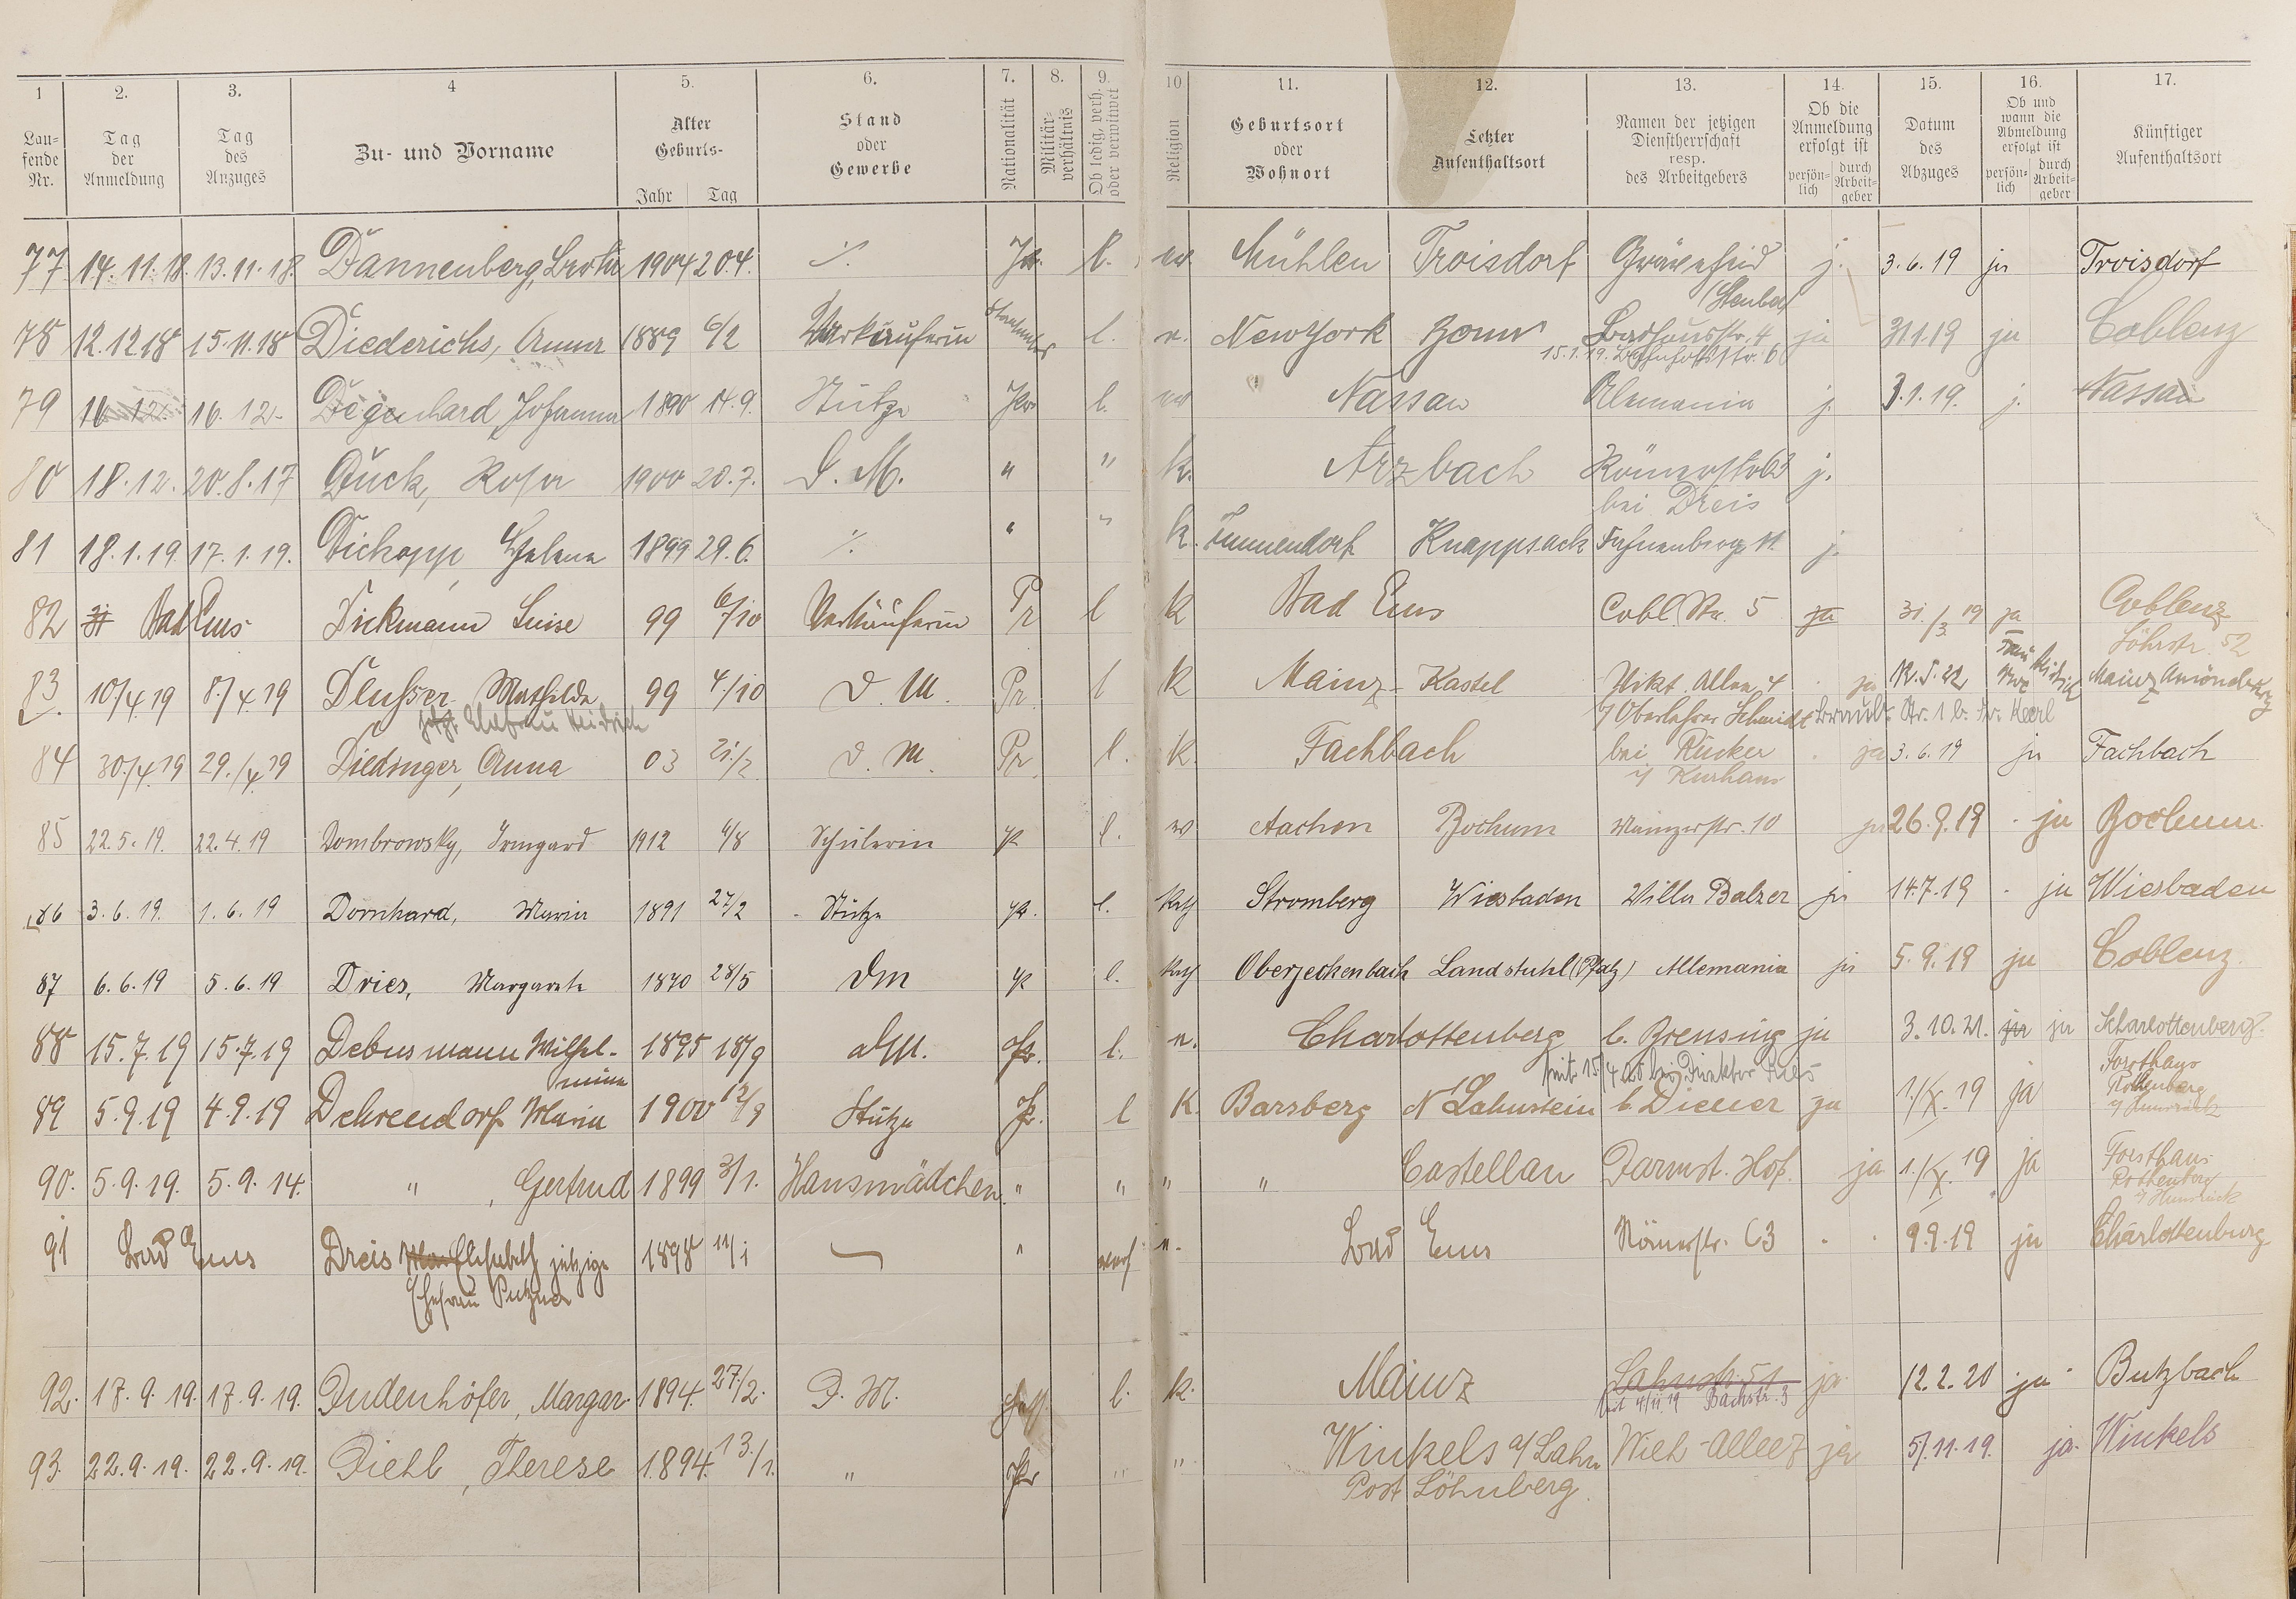 1 2. 3. 4 5. 6. 7. 8. 9. 10 11. 12. 13. 14. 15. 16. 17.
Laufende Nr. Tag der Anmeldung Tag des Anzuges Zu- und Vorname Alter Geburts- Jahr Tag Stand oder Gewerbe Nationalität Militärverhältnis Ob ledig, verh. oder verwitwet Religion Geburtsort oder Wohnort Letzter Aufenthaltsort Namen der jetzigen Dienstherrschaft resp. des Arbeitgebers Ob die Anmeldung erfolgt ist persönlich durch Arbeitgeber Datum des Abzuges Ob und wann die Abmeldung erfolgt ist persönlich durch Arbeitgeber Künftiger Aufenthaltsort
77 14.11.18. 13.11.18 Dannenberg, 1904 20.4. ·/. Pr. l. Mühlen Troisdorf j. 3.6.19 ja Troisdorf
78 12.12.18 15.11.18 Diederichs, Anna 1889 6/2 Verkäuferin l. NewYork Bonn Badhausstr. 4 ja 31.1.19 ja Coblenz
15.1.19. Bahnhofstr. 6
79 16.12. 16.12. Degenhard, Johanna 1890 14.9. Stütze Pr l. Nassau Alemania j. 3.1.19. j. Nassau
80 18.12. 20.8.17 Duck, Rosa 1900 20.7. D. M. " " k. Arzbach j.
bei Dreis
81 18.1.19. 17.1.19. Dickopp, Helene 1899 29.6. ·/. " " k. Knappsack j.
82 Bad Ems Dickmann Luise 99 6/10 Verkäuferin Pr l k Bad Ems Cobl. Str. 5 ja 31./3.19 ja Coblenz
Löhrstr. 52
83. 10/4.19 8/4.19 Mathilde 99 4./10 D. M. Pr. l k Mainz-Kastel Vikt. Allee 4 ja Mainz Amöneburg
jetzt Ehefrau
i/ Oberlehrer Schmidt
84 30./4.19 29./4.19 Diedinger, Anna 03 21./2. D. M. Pr. l. k. Fachbach bei Rücker ja 3.6.19 ja Fachbach
i/ Kurhaus
85 22.5.19. 22.4.19 Dombrowsky, Irmgard 1912 Schülerin Pr l. Aachen Bochum Mainzerstr. 10 ja 26.9.19 ja Bochum
86 3.6.19. 1.6.19 Dornhard, Maria 1891 27/2 Stütze Pr. l. kath Stromberg Wiesbaden Villa Balzer ja 14.7.19 ja Wiesbaden
87 6.6.19 5.6.19 Dries, Margarete 1870 28/5 DM Pr l. kath Oberjeckenbach Landstuhl (Pfalz) Allemania ja 5.9.19 ja Coblenz.
88 15.7.19 15.7.19 Debusmann Wilhel- 1895 18/9 DM. Pr. l. Charlottenberg b. Brensing ja 3.10.21. ja ja Scharlottenberg.
mine
89 5.9.19 4.9.19 Dehrendorf Maria 1900 12/9 Stütze Pr. l K. Barsberg N Lahnstein b. Diener ja 1./X.19 ja Forsthaus
90. 5.9.19. 5.9.14. " , Gertrud 1899 3/1. Hausmädchen. " " " " Castellau Darmst. Hof. ja 1./X.19 ja Forsthaus
i/ Hunsrück
91 Bad Ems Dreis Elisabeth jetzige 1898 11/1 " verh Bad Ems Römerstr. 63 9.9.19 ja Charlottenburg
Ehefrau
92. 17.9.19. 17.9.19. Dudenhöfer, Margar. 1894. 27/2. D. M. Hess. l. k. Mainz Lahnstr. 51 ja. 12.2.20 ja Butzbach
seit 4/11.19 Bachstr. 3
93. 22.9.19. 22.9.19. Diehl, Therese 1894. 13./1. " Pr " " Winkels a/Lahn ja 5/.11.19. ja. Winkels
Post Löhnberg.